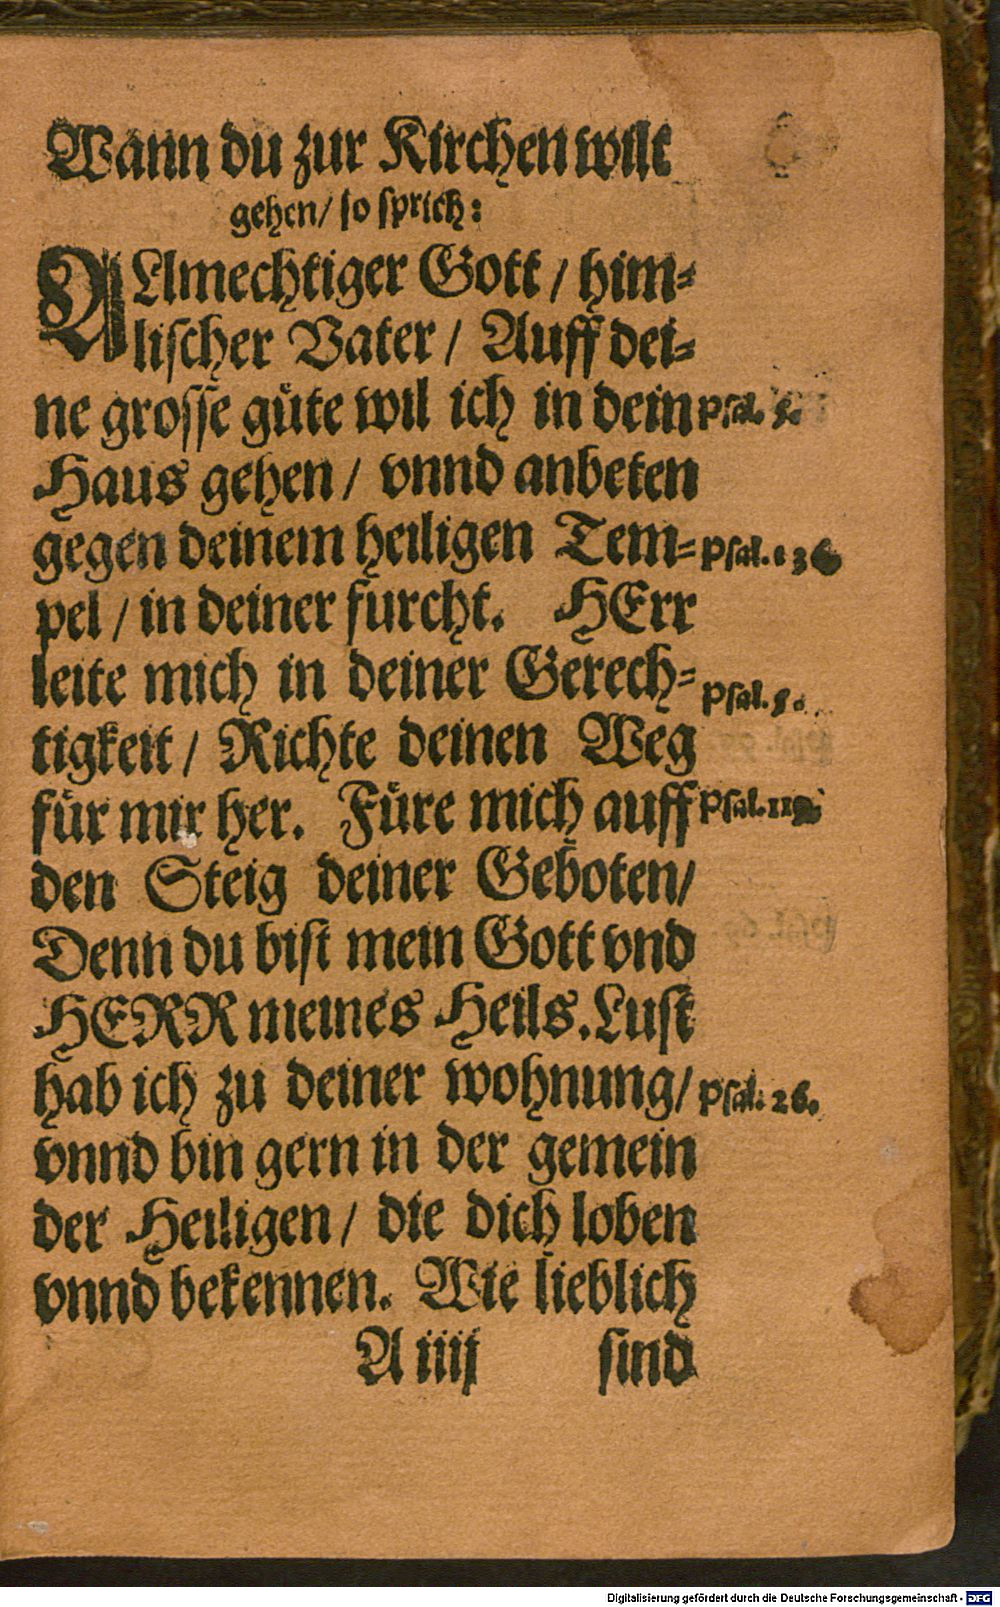 Wann du zur Kirchen wilt
gehen/ so sprich:
ALlmechtiger Gott / him-
lischer Vater / Auff dei-
ne grosse güte wil ich in dein Psal. 5.
Haus gehen / vnnd anbeten
gegen deinem heiligen Tem- Psal. 136
pel / in deiner furcht. HErr
leite mich in deiner Gerech- Psal. 5.
tigkeit / Richte deinen Weg
für mir her. Füre mich auff Psal. 119.
den Steig deiner Geboten/
Denn du bist mein Gott vnd
HERR meines Heils. Lust
hab ich zu deiner wohnung/ Psal. 26.
vnnd bin gern in der gemein
der Heiligen / die dich loben
vnnd bekennen. Wie lieblich
A iiij sind
Digitalisierung gefördert durch die Deutsche Forschungsgemeinschaft - DFG